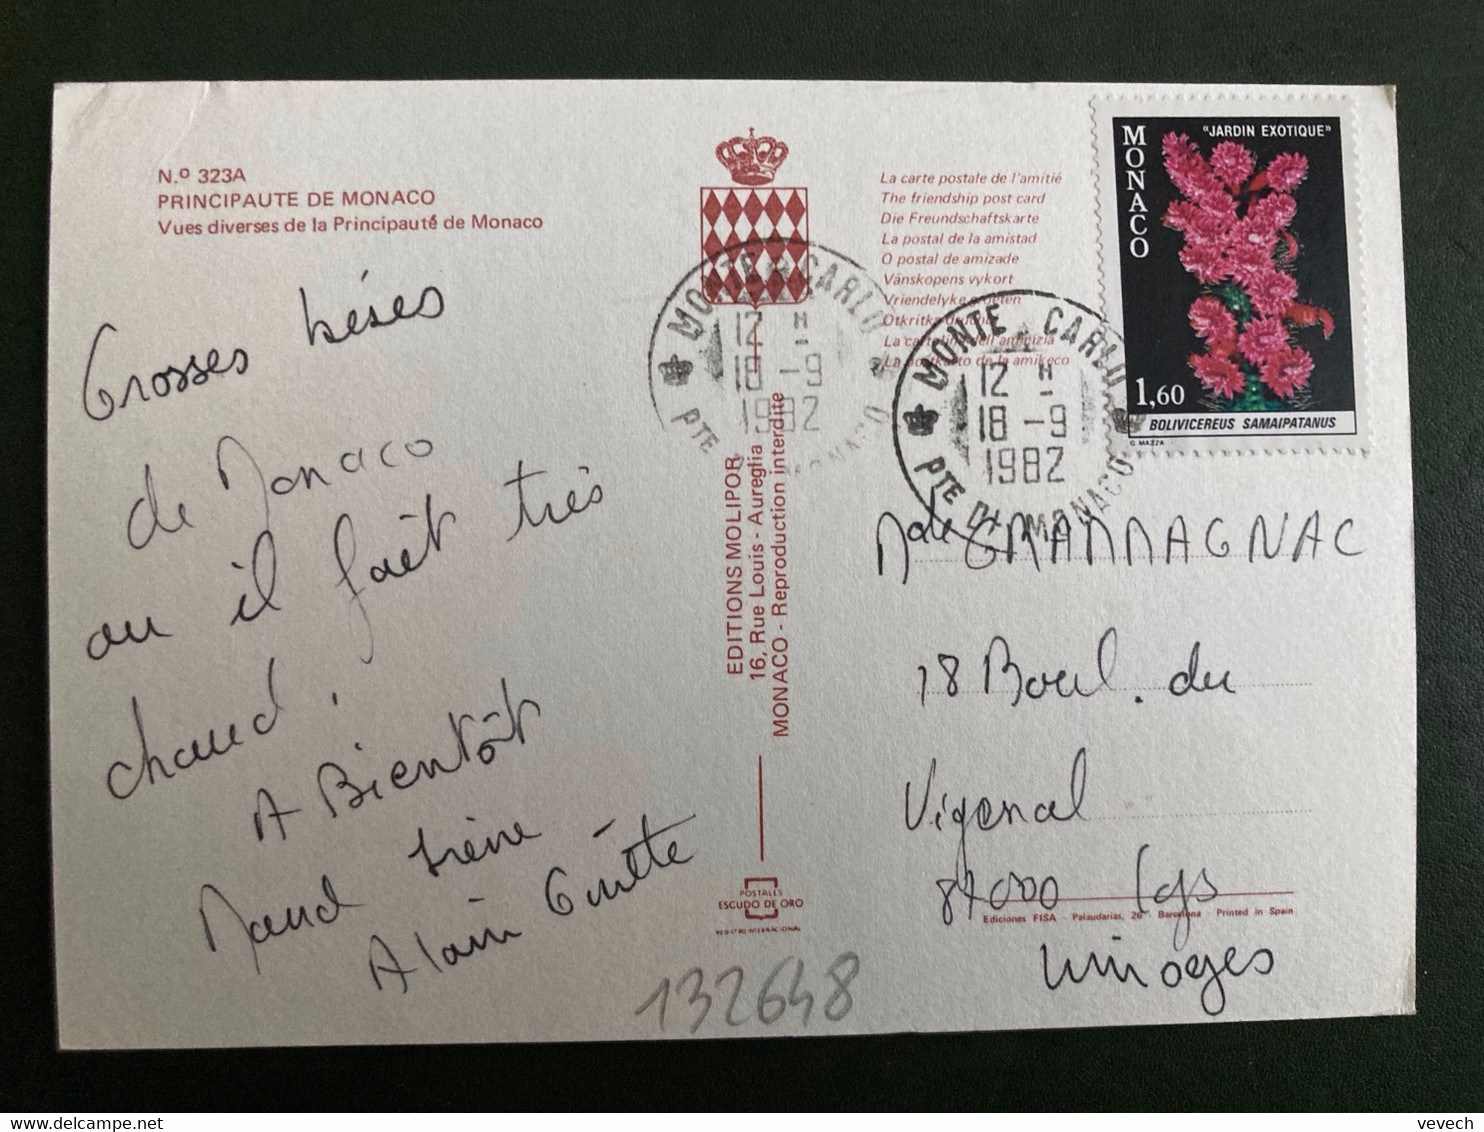 N.º 323A
PRINCIPAUTE DE MONACO
Vues diverses de la Principauté de Monaco
Grosses béses
de Monaco
ou il faît très
chaud.
A Bientôt
Maud Irène
Alain Guitte
La carte postale de l'amitié
The friendship post card
Die Freundschaftskarte
La postal de la amistad
O postal de amizade
Vänskopens vykort
Vriendelyke groeten
Otkritka
La cartolina dell'amicizia
La de la amikeco
MONTE CARLO
12 H
18 - 9
1982
PTE MONACO
MONTE CARLO
12 H
18 - 9
1982
PTE DE MONACO
MONACO
"JARDIN EXOTIQUE"
1,60
BOLIVICEREUS SAMAIPATANUS
G MAZZA
EDITIONS MOLIPOR
16, Rue Louis - Aureglia
MONACO - Reproduction interdite
POSTALES
ESCUDO DE ORO
REGISTRO INTERNACIONAL
GRAMMAGNAC
18 Boul. du
Vigenal
87000 Lgs
Limoges
Ediciones FISA - Palaudarias, 26 - Barcelona - Printed in Spain
132648
vevech